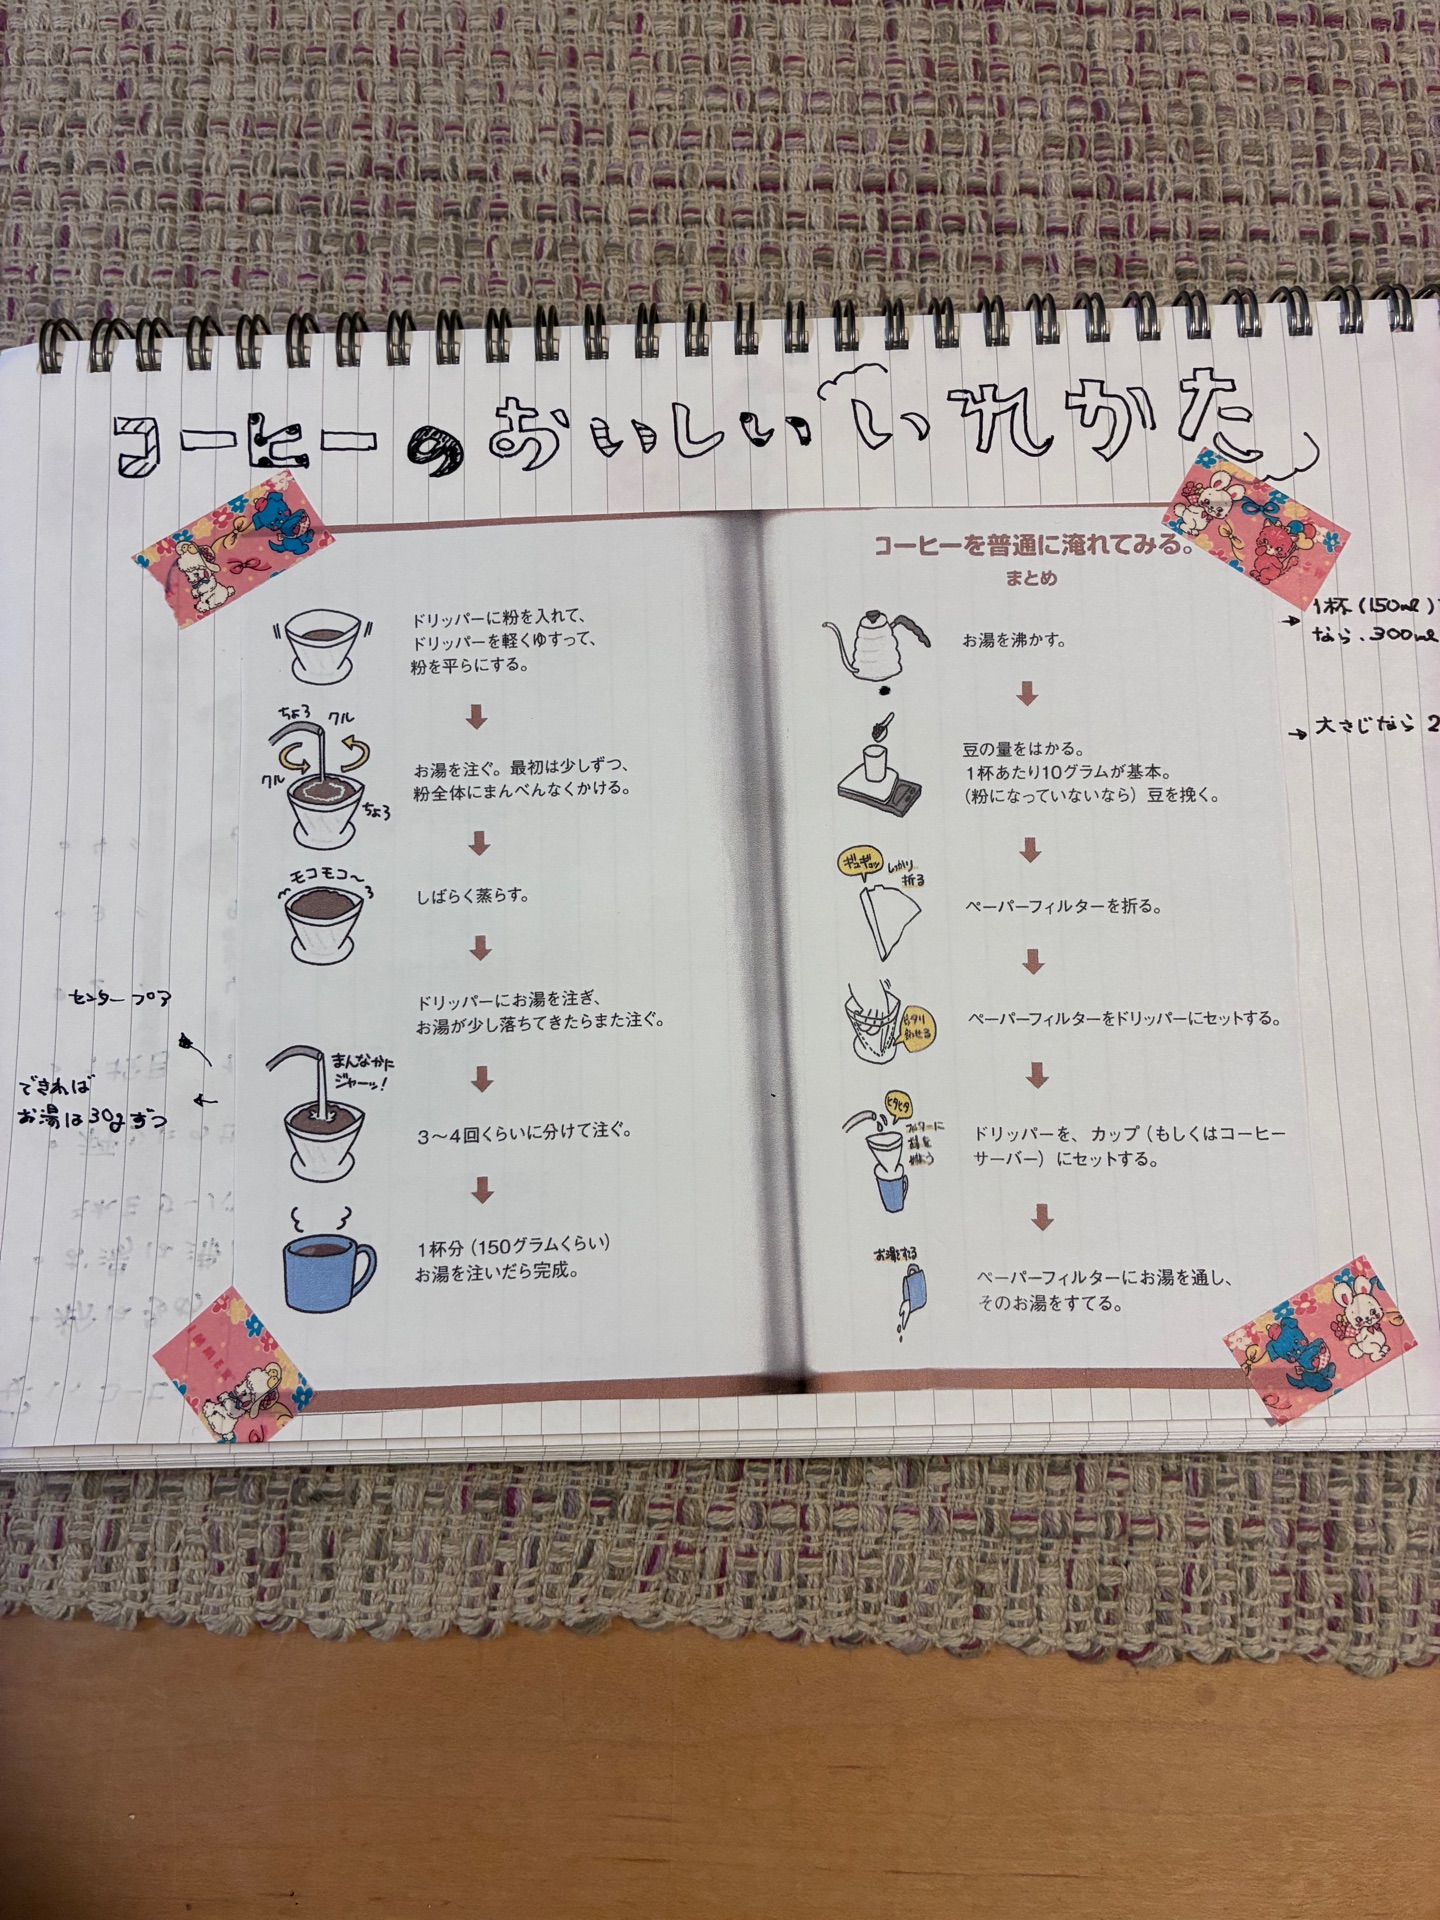 コーヒーのおいしいいれかた
コーヒーを普通に淹れてみる。
まとめ
お湯を沸かす。
1杯(150ml)
なら、300ml
豆の量をはかる。
1杯あたり10グラムが基本。
(粉になっていないなら)豆を挽く。
大さじなら2
ギュギュッ
しっかり
折る
ペーパーフィルターを折る。
ピタリ
合わせる
ペーパーフィルターをドリッパーにセットする。
ヒタヒタ
フィルターに
ドリッパーを、カップ(もしくはコーヒー
サーバー)にセットする。
お湯をすてる
ペーパーフィルターにお湯を通し、
そのお湯をすてる。
ドリッパーに粉を入れて、
ドリッパーを軽くゆすって、
粉を平らにする。
ちょろ クル
クル
ちょろ
お湯を注ぐ。最初は少しずつ、
粉全体にまんべんなくかける。
モコモコ〜
しばらく蒸らす。
ドリッパーにお湯を注ぎ、
お湯が少し落ちてきたらまた注ぐ。
まんなかに
ジャーッ!
3〜4回くらいに分けて注ぐ。
センタープロア
できれば
お湯は30gずつ
1杯分(150グラムくらい)
お湯を注いだら完成。